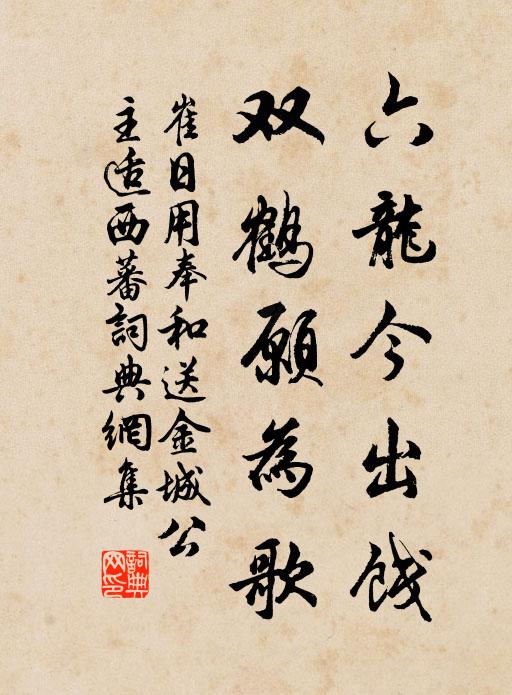 六龍今出餞
双鶴願為歌
崔日用奉和送金城公
主适西蕃詞典網集
詞典网印